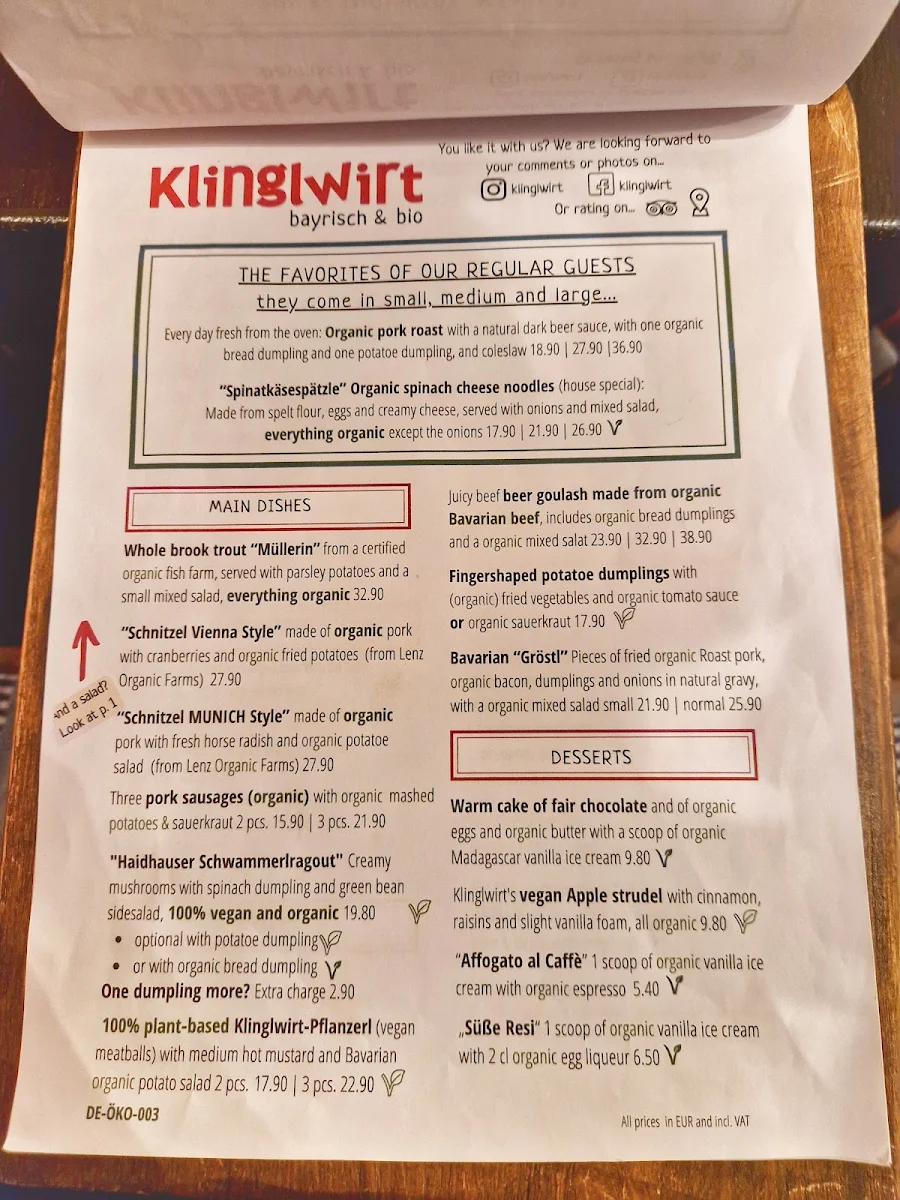 You like it with us? We are looking forward to
your comments or photos on...
klinglwirt klinglwirt
Or rating on...
Klinglwirt
bayrisch & bio
THE FAVORITES OF OUR REGULAR GUESTS
they come in small, medium and large...
Every day fresh from the oven: Organic pork roast with a natural dark beer sauce, with one organic
bread dumpling and one potatoe dumpling, and coleslaw 18.90 | 27.90 |36.90
“Spinatkäsespätzle” Organic spinach cheese noodles (house special):
Made from spelt flour, eggs and creamy cheese, served with onions and mixed salad,
everything organic except the onions 17.90 | 21.90 | 26.90
MAIN DISHES
Whole brook trout “Müllerin” from a certified
organic fish farm, served with parsley potatoes and a
small mixed salad, everything organic 32.90
“Schnitzel Vienna Style” made of organic pork
with cranberries and organic fried potatoes (from Lenz
Organic Farms) 27.90
And a salad?
Look at p. 1
“Schnitzel MUNICH Style” made of organic
pork with fresh horse radish and organic potatoe
salad (from Lenz Organic Farms) 27.90
Three pork sausages (organic) with organic mashed
potatoes & sauerkraut 2 pcs. 15.90 | 3 pcs. 21.90
"Haidhauser Schwammerlragout" Creamy
mushrooms with spinach dumpling and green bean
sidesalad, 100% vegan and organic 19.80
• optional with potatoe dumpling
• or with organic bread dumpling
One dumpling more? Extra charge 2.90
100% plant-based Klinglwirt-Pflanzerl (vegan
meatballs) with medium hot mustard and Bavarian
organic potato salad 2 pcs. 17.90 | 3 pcs. 22.90
DE-ÖKO-003
Juicy beef beer goulash made from organic
Bavarian beef, includes organic bread dumplings
and a organic mixed salat 23.90 | 32.90 | 38.90
Fingershaped potatoe dumplings with
(organic) fried vegetables and organic tomato sauce
or organic sauerkraut 17.90
Bavarian “Gröstl” Pieces of fried organic Roast pork,
organic bacon, dumplings and onions in natural gravy,
with a organic mixed salad small 21.90 | normal 25.90
DESSERTS
Warm cake of fair chocolate and of organic
eggs and organic butter with a scoop of organic
Madagascar vanilla ice cream 9.80
Klinglwirt's vegan Apple strudel with cinnamon,
raisins and slight vanilla foam, all organic 9.80
“Affogato al Caffè” 1 scoop of organic vanilla ice
cream with organic espresso 5.40
„Süße Resi“ 1 scoop of organic vanilla ice cream
with 2 cl organic egg liqueur 6.50
All prices in EUR and incl. VAT